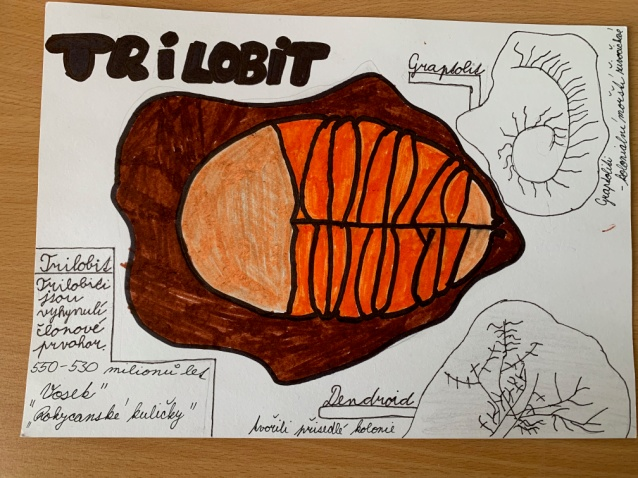 TRiLOBiT
Graptolit
Graptoliti
- koloniální mořští živočichové
Trilobit
Trilobiti
jsou
vyhynulí
členové
prvohor.
550-530 milionů let
"Vosek"
"Rokycanské kuličky"
Dendroid
tvořili přisedlé kolonie